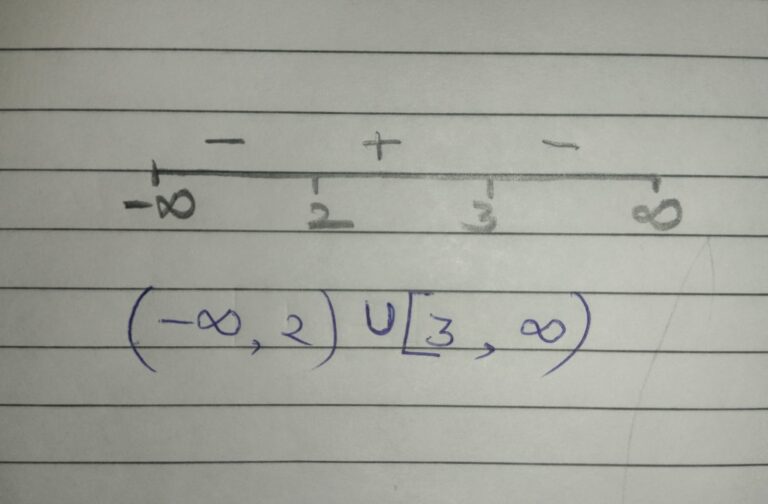 - + -
-∞ 2 3 ∞
(-∞, 2) ∪ [3, ∞)